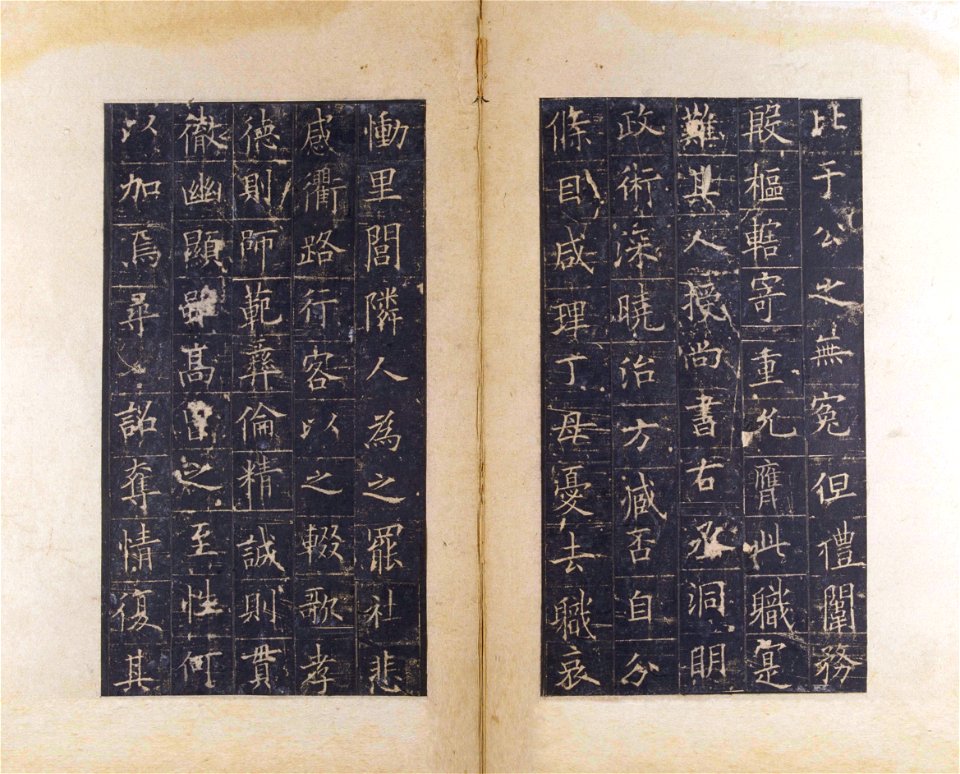 比于公之無冤但禮闈務
殷樞轄寄重允膺此職寔
難其人授尚書右丞洞明
政術深曉治方臧否自分
條目咸理丁母憂去職哀
慟里閭隣人為之罷社悲
感衢路行客以之輟歌孝
徳則師範彝倫精誠則貫
徹幽顯雖高曾之至性何
以加焉尋又詔奪情復其